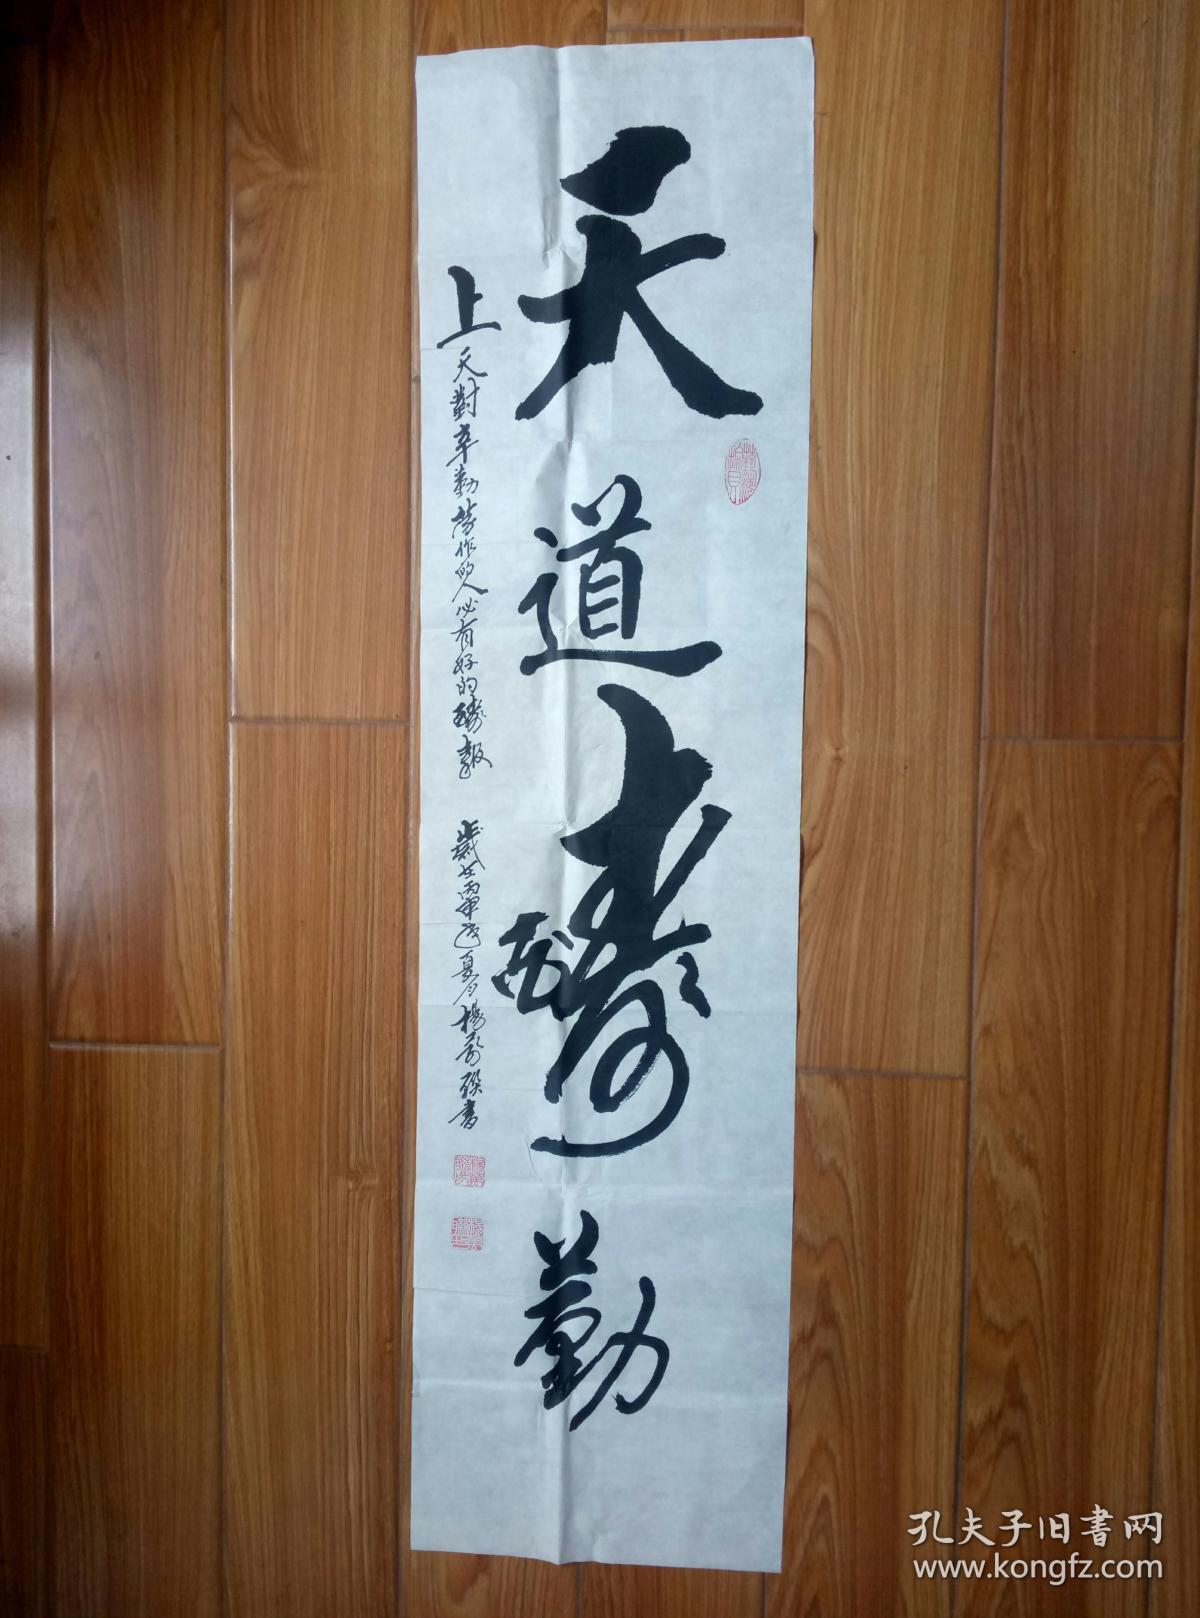 天道酬勤
上天對辛勤勞作的人必有好的酬報 歲次丙申年夏月楊
書
孔夫子旧书网
www.kongfz.com